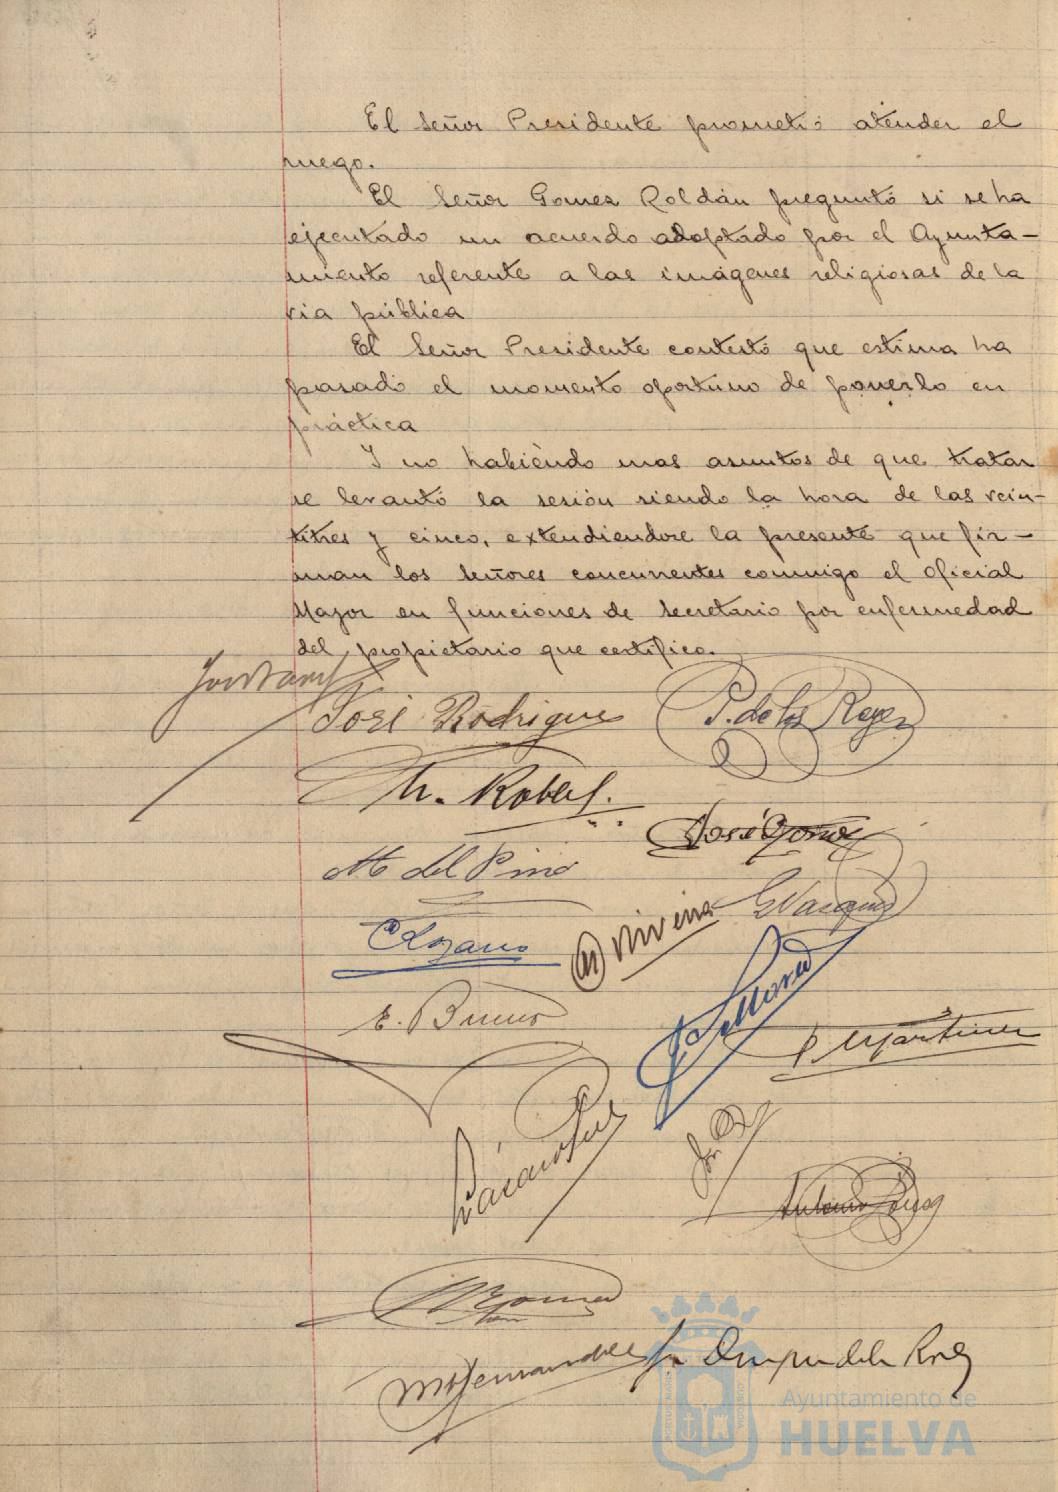 El Señor Presidente prometió atender el
ruego.
El Señor Gomez Roldán preguntó si se ha
ejecutado un acuerdo adoptado por el Ayunta-
miento referente a las imágenes religiosas de la
via pública
El Señor Presidente contestó que estima ha
pasado el momento oportuno de ponerlo en
práctica
Y no habiendo mas asuntos de que tratar
se levantó la sesión siendo la hora de las vein-
titres y cinco, extendiendose la presente que fir-
man los señores concurrentes conmigo el Oficial
Mayor en funciones de Secretario por enfermedad
del propietario que certifico.
José Rodrigue P. de los Reyes
M. del Pino
E. Vazquez
C Lozano
E. Bueno
P Martinez
Antonio
Ayuntamiento de
HUELVA